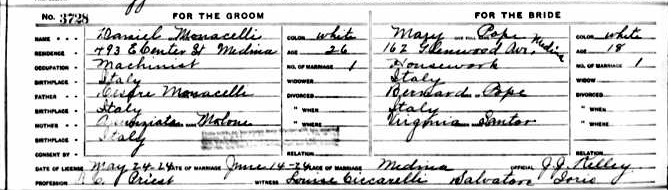 No. 3728 FOR THE GROOM FOR THE BRIDE
NAME Daniel Monacelli COLOR white Mary Pope COLOR white
RESIDENCE 493 E Center St Medina AGE 26 162 Glenwood Ave, Medina AGE 18
OCCUPATION Machinist NO. OF MARRIAGE 1 Housework NO. OF MARRIAGE 1
BIRTHPLACE Italy WIDOWER Italy WIDOW
FATHER Monacelli DIVORCED Bernard Pope DIVORCED
BIRTHPLACE Italy " WHEN Italy " WHEN
MOTHER NAME Molone " WHERE Virginia Santor " WHERE
BIRTHPLACE Italy
CONSENT BY RELATION RELATION
DATE OF LICENSE May 24-24 DATE OF MARRIAGE June 14-24 PLACE OF MARRIAGE Medina OFFICIAL J.J. Kelley
PROFESSION R.C. Priest WITNESS Louise Ciccarelli Salvatore Iorio